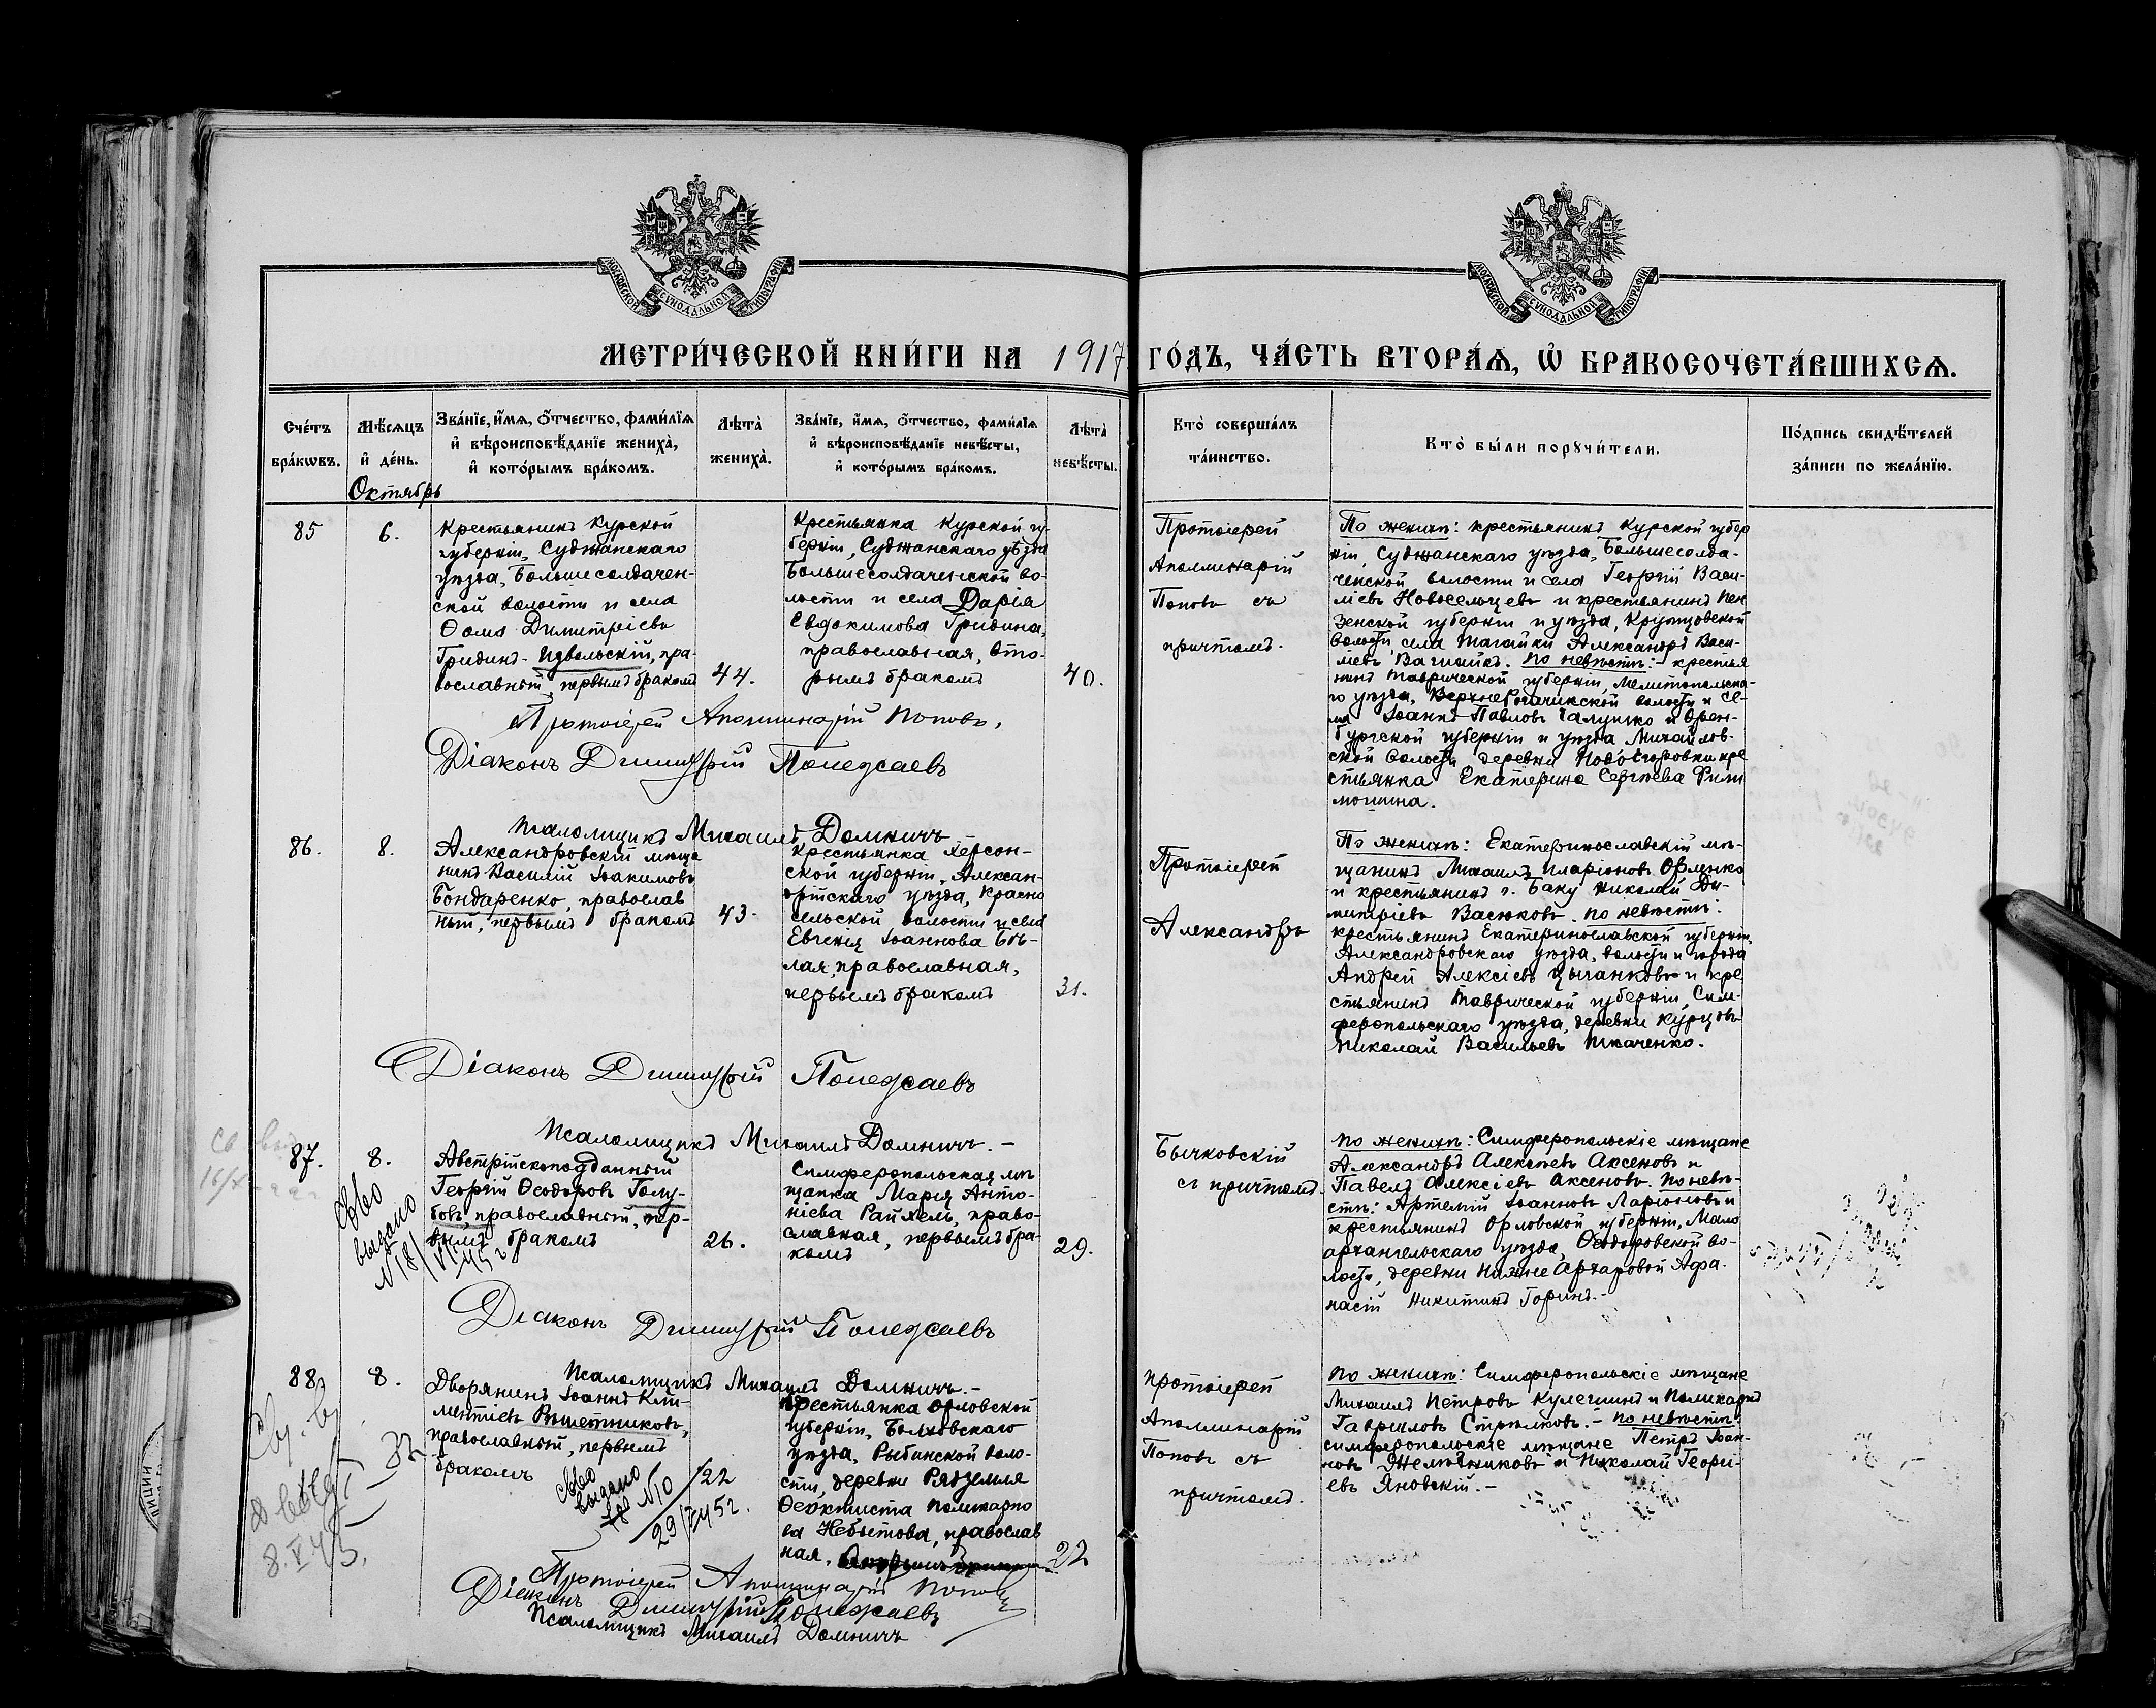 МОСКОВСКОЙ СѴНОДАЛЬНОЙ ТИПОГРАФІИ
МОСКОВСКОЙ СѴНОДАЛЬНОЙ ТИПОГРАФІИ
МЕТРИ́ЧЕСКОЙ КНИ́ГИ НА 1917 ГО́ДЪ, ЧА́СТЬ ВТОРА́Я, Ѡ БРАКОСОЧЕТА́ВШИХСѦ.
Сче́тъ бра́кѡвъ.
Мѣ́сяцъ и де́нь.
Зва́нїе, и́мѧ, ѻ́тчество, фами́лїѧ
и вѣроисповѣ́данїе жениха̀,
и кото́рымъ бра́комъ.
Лѣта̀ жениха̀.
Зва́нїе, и́мѧ, ѻ́тчество, фами́лїѧ
и вѣроисповѣ́данїе невѣ́сты,
и кото́рымъ бра́комъ.
Лѣта̀ невѣ́сты.
Кто̀ соверша́лъ
та́инство.
Кто̀ бы́ли порꙋчи́тели.
По́дпись свидѣ́телей
за́писи по жела́нїю.
Октябрь
85
6.
Крестьянинъ Курской
губерніи, Суджанскаго
уѣзда, Большесолдачен-
ской волости и села
Ѳома Димитріевъ
Гридинъ-Извольскій, пра-
вославный, первымъ бракомъ
44.
Крестьянка Курской гу-
берніи, Суджанскаго уѣзда
Большесолдаченской во-
лости и села Дарія
Евдокимова Гридина,
православная, вто-
рымъ бракомъ
40.
Протоіерей
Аполлинарій
Поповъ съ
причтомъ.
По женихѣ: крестьянинъ Курской губер
ніи, Суджанскаго уѣзда, Большесолда-
ченской волости и села Георгій Васи-
ліевъ Новосельцевъ и крестьянинъ Пен
зенской губерніи и уѣзда,
волости, села Александръ Васи-
ліевъ По невѣстѣ: крестья
нинъ Таврической губерніи, Мелитопольска-
го уѣзда, Верхнерогачикской волости и се-
ла Іоаннъ Павловъ и Орен-
бургской губерніи и уѣзда Михайлов-
ской волости, деревни кре
стьянка Екатерина Сергѣева
Протоіерей Аполлинарій Поповъ,
Діаконъ Димитрій
Псаломщикъ Михаилъ Домничъ
86.
8.
Александровскій мѣща
нинъ Василій Іоакимовъ
Бондаренко, православ
ный, первымъ бракомъ
43.
Крестьянка Херсон-
ской губерніи, Алексан-
дрійскаго уѣзда, Красно
сельской волости и села
Евгенія Іоаннова Бѣ-
лая, православная,
первымъ бракомъ
31.
Протоіерей
Александръ
По женихѣ: Екатеринославскій мѣ-
щанинъ Михаилъ Иларіоновъ Орленко
и крестьянинъ г. Баку Николай Ди-
митріевъ Васюковъ. По невѣстѣ:
крестьянинъ Екатеринославской губерніи,
Александровскаго уѣзда, волости и города
Андрей Алексіевъ Цыганковъ и кре
стьянинъ Таврической губерніи, Сим-
феропольскаго уѣзда, деревни Курцовъ
Николай Васильевъ Ткаченко.
Діаконъ Димитрій
Псаломщикъ Михаилъ Домничъ.-
87.
8.
Св-во
выдано
N 18/
Австрійскоподданный
Георгій Ѳеодоровъ Голу-
бовъ, православный, пер-
вымъ бракомъ
26.
Симферопольская мѣ
щанка Марія Анто-
ніева Райхель, право-
славная, первымъ бра-
комъ
29.
Бычковскій
съ причтомъ.
По женихѣ: Симферопольскіе мѣщане
Александръ Алексѣевъ Аксеновъ и
Павелъ Алексіевъ Аксеновъ. По невѣ-
стѣ: Артемій Іоанновъ Ларіоновъ и
крестьянинъ Орловской губерніи, Мало
архангельскаго уѣзда, Ѳеодоровской во-
лости, деревни Нижне Архаровой Афа-
насій Никитинъ Горинъ.-
Діаконъ Димитрій
Псаломщикъ Михаилъ Домничъ.-
88
8.
Дворянинъ Іоаннъ Кли-
ментіевъ Рѣшетниковъ,
православный, первымъ
бракомъ
22
Св-во
выдано
N 10
Крестьянка Орловской
губерніи, Болховскаго
уѣзда, Рыбинской воло-
сти, деревни
Ѳеоктиста Поликарпо
ва Небытова, православ
ная,
22
Протоіерей
Аполлинарій
Поповъ съ
причтомъ.
По женихѣ: Симферопольскіе мѣщане
Михаилъ Петровъ Кулешинъ и Поликарпъ
Гавриловъ Стрѣлковъ.- По невѣстѣ:
симферопольскіе мѣщане Петръ Іоан-
новъ и Николай Георгі-
евъ Яновскій.-
8.V 45.
Протоіерей Аполлинарій Поповъ
Діаконъ Димитрій
Псаломщикъ Михаилъ Домничъ